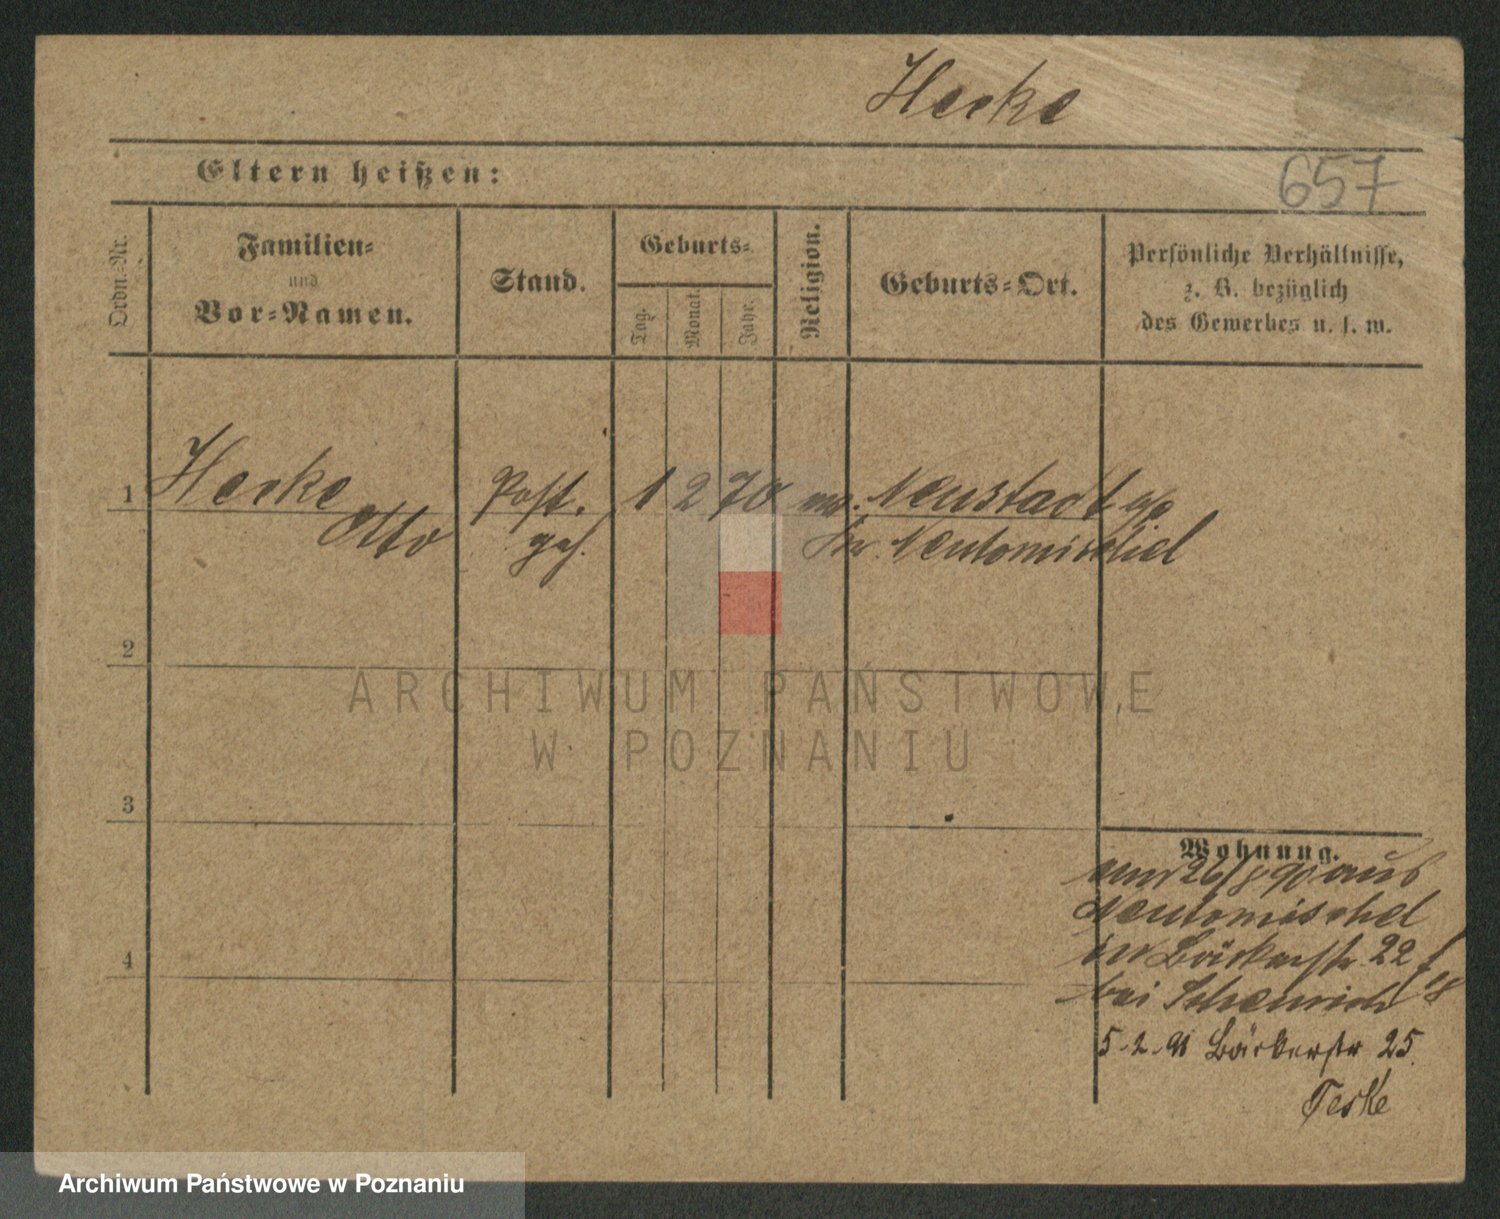 Hecke
657
Eltern heißen:
Ordn.-Nr.
Familien-
und
Vor-Namen.
Stand.
Geburts-
Tag.
Monat.
Jahr.
Religion.
Geburts-Ort.
Persönliche Verhältnisse,
z. B. bezüglich
des Gewerbes u. s. w.
1 Hecke Post. 1 2 70 Neustadt
Otto geh. Kr. Neutomischel
2
3
4
Wohnung.
26/8 90 aus
Neutomischel
Bäckerstr. 22
bei
5-2-91 Bäckerstr 25
Teske
ARCHIWUM PAŃSTWOWE
W POZNANIU
Archiwum Państwowe w Poznaniu